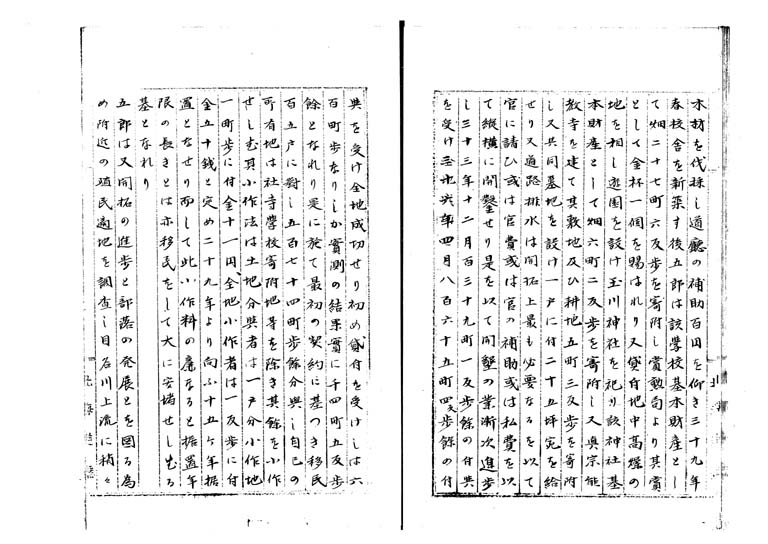 木材を伐採し道廳の補助百円を仰き三十九年
春校舎を新築す後五郎は該學校基本財産とし
て畑二十七町六反歩を寄附し賞勲局より其賞
として金杯一個を賜はれり又貸付地中高燥の
地を相し遊園を設け玉川神社を祀り該神社基
本財産として畑六町二反歩を寄附し又真宗
教寺を建て其敷地及ひ耕地五町三反歩を寄附
し又共同墓地を設け一戸に付二十五坪宛を給
せり又道路排水は開拓上最も必要なるを以て
官に請ひ或は官費或は官の補助或は私費を以
て縦横に開鑿せり是を以て開墾の業漸次進歩
し三十三年十二月百三十九町一反歩餘の付與
を受け 年四月八百六十五町四反歩餘の付
與を受け全地成功せり初め貸付を受けしは六
百町歩なりしか實測の結果實に千四町五反歩
餘となれり是に於て最初の契約に基つき移民
百五戸に對し五百七十四町歩餘分與し自己の
所有地は社寺學校寄附地等を除き其餘を小作
せしむ其小作法は土地分與者は一戸分小作地
一町歩に付金十一円、全地小作者は一反歩に付
金五十銭と定め二十九年より向ふ十五ヶ年据
置となせり而して此小作料の廉なると据置年
限の長きとは亦移民をして大に安堵せしむる
基となれり
五郎は又開拓の進歩と部落の発展とを図る為
め附近の殖民適地を調査し目石川上流に稍々
北海道廳